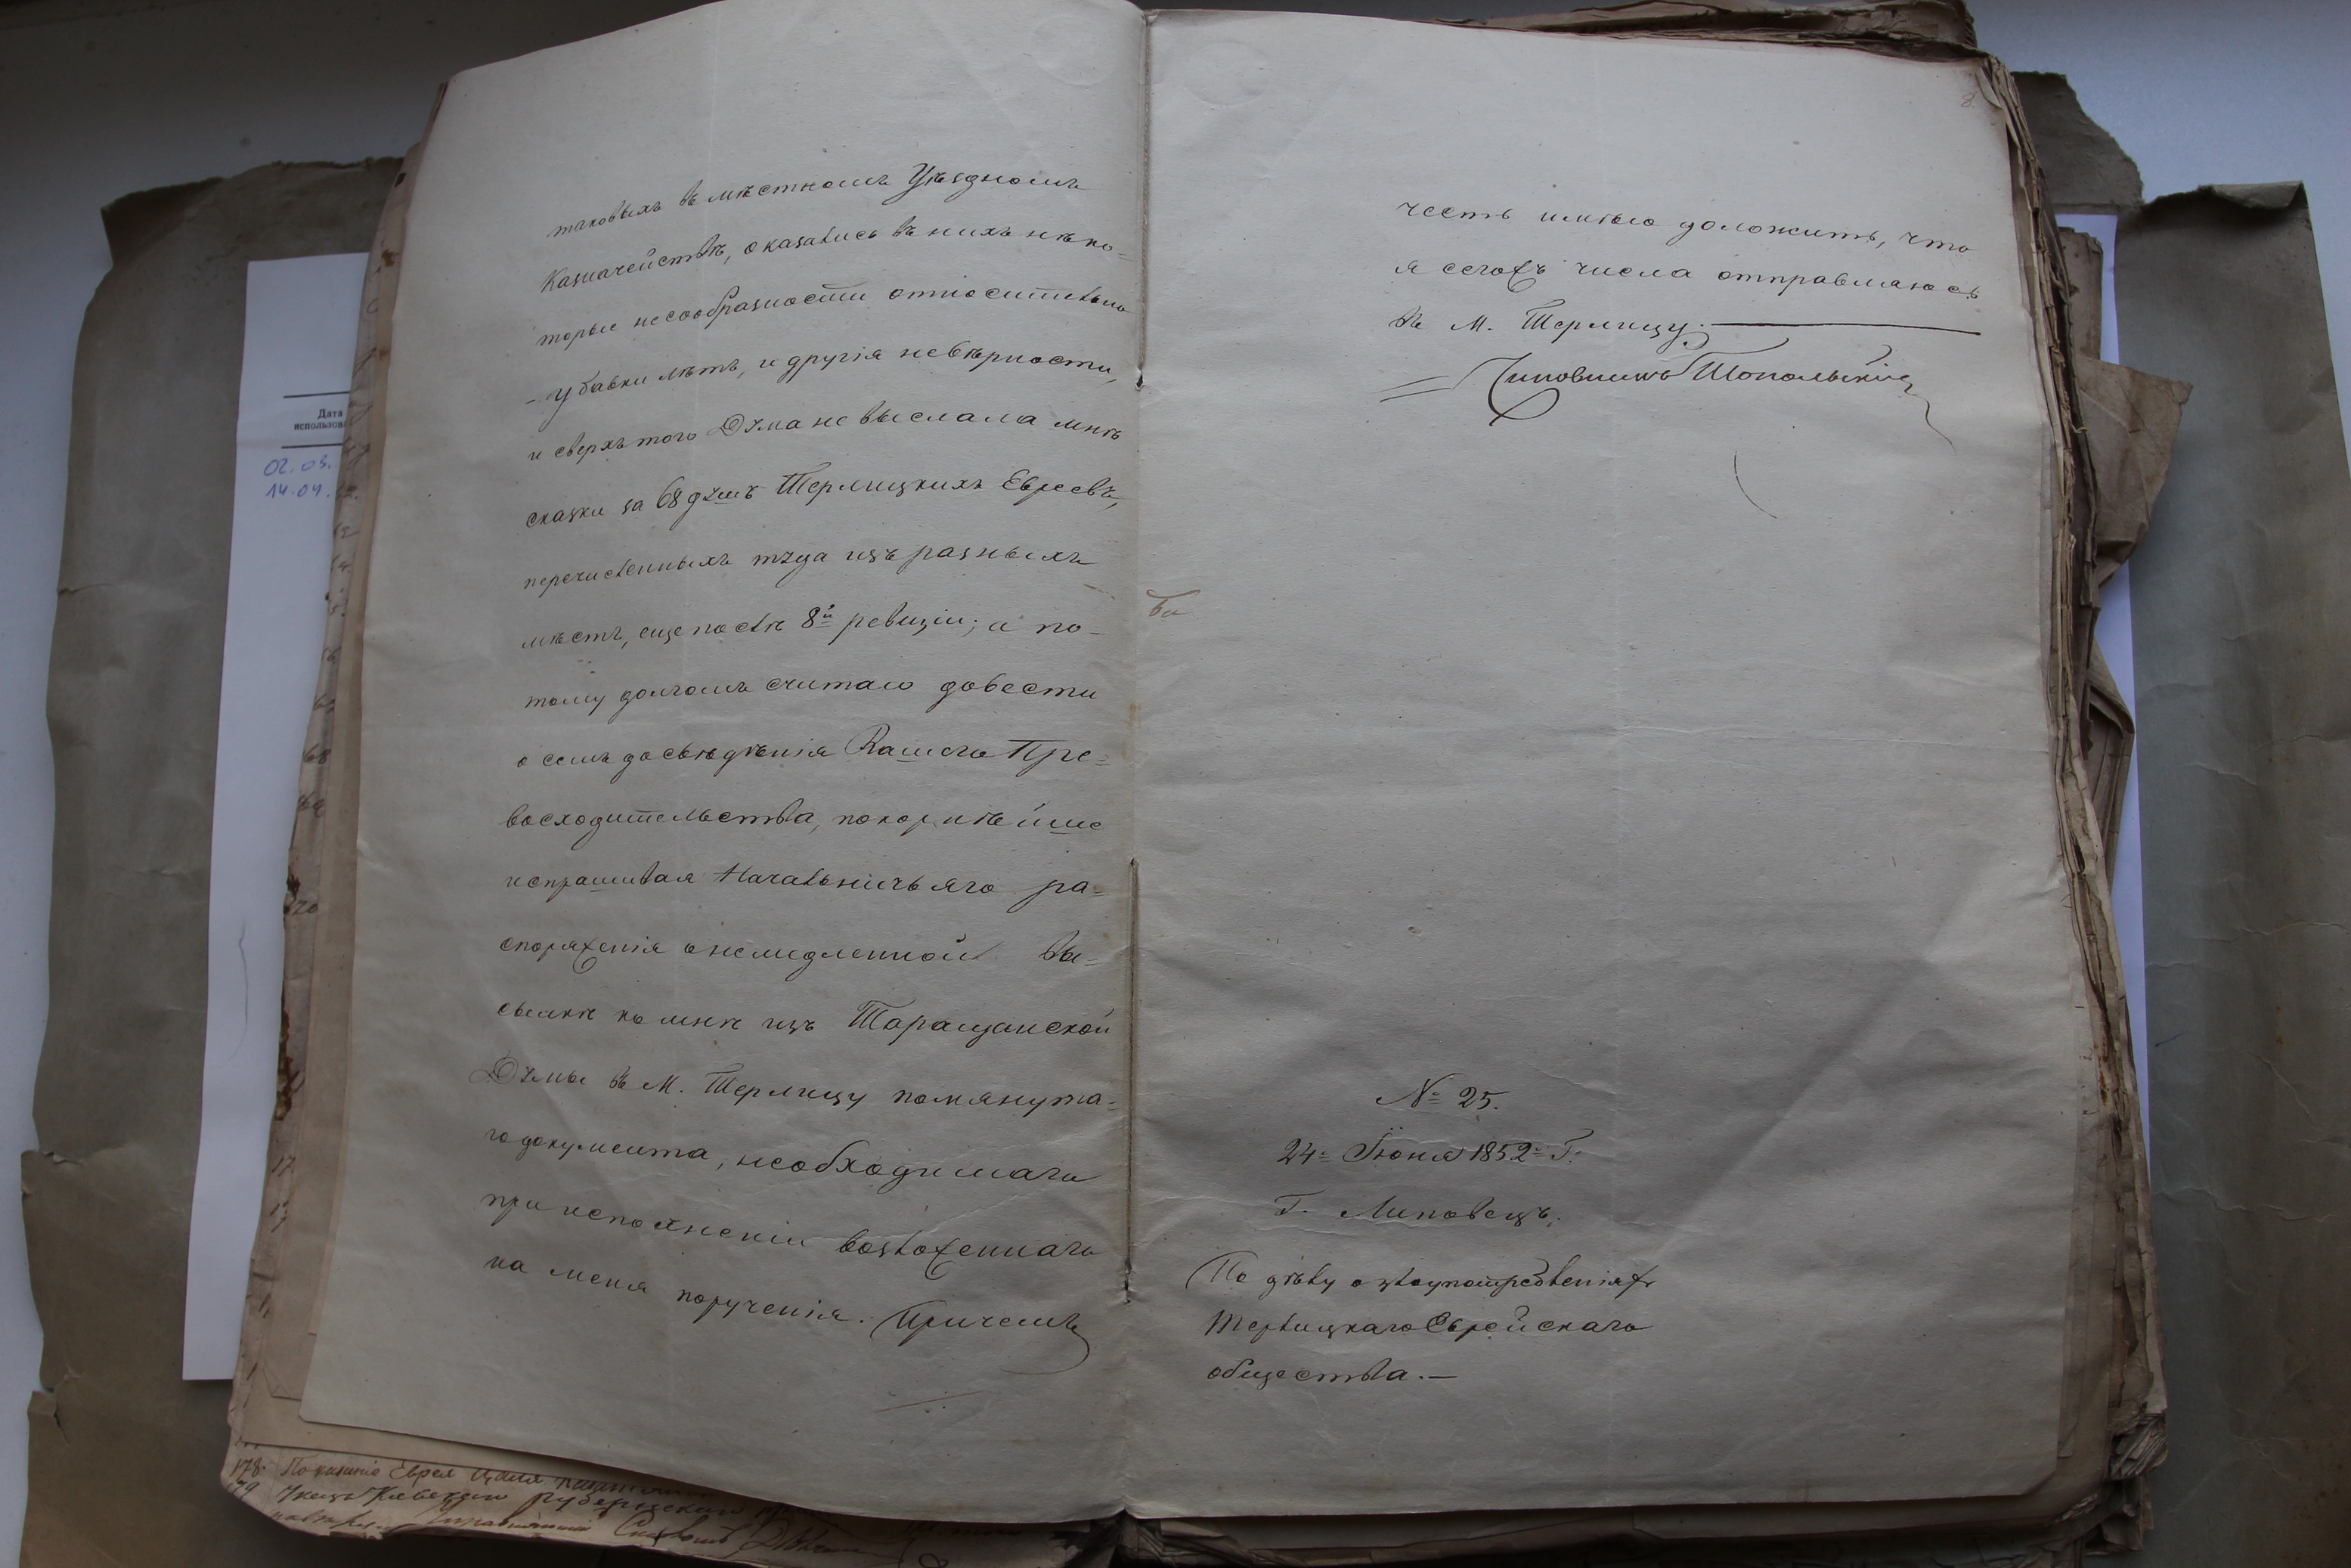 таковыхъ въ мѣстномъ Уѣздномъ
Казначействѣ, оказались въ нихъ нѣко=
торые несообразности относительно
- убавки лѣтъ, и другія невѣрности,
и сверхъ того Дума не выслала мнѣ
сказки за 68 душъ Терлицкихъ Евреевъ,
перечисленныхъ туда изъ разныхъ
мѣстъ, еще послѣ 8й ревизіи; а по-
тому долгомъ считаю довести
о семъ до свѣдѣнія Вашего Пре=
восходительства, покорнѣйше
испрашивая Начальничьяго ра=
споряженія о немедленной вы=
сылкѣ ко мнѣ изъ Таращанской
Думы въ М. Терлицу помянута=
го документа, необходимаго
при исполненіи возложеннаго
на меня порученія. Причемъ
8
честь имѣю доложить, что
я сегожъ числа отправляюсь
въ М. Терлицу.
Чиновникъ Топольскій
№ 25.
24= Іюня 1852= Г.
Г. Липовецъ.
По дѣлу о злоупотребленіяхъ
Терлицкаго Еврейскаго
общества.—
Дата
использов
02.03.
14.04.
68
69
70
17
178. Показаніе Еврея
79